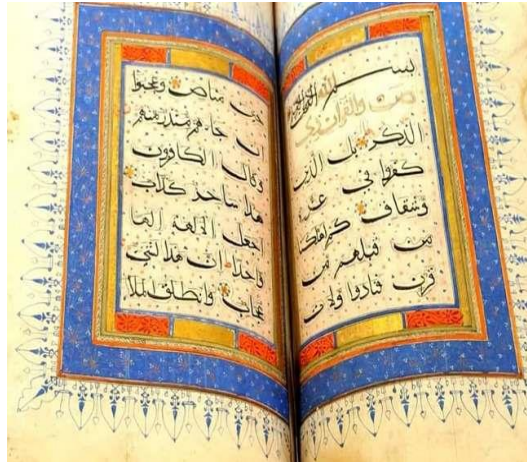 بسم الله الرحمن الرحيم
ص والقران ذي
الذكر بل الذين
كفروا في عزة
وشقاق كم اهلكنا
من قبلهم من
قرن فنادوا ولات
حين مناص وعجبوا
ان جاءهم منذر منهم
وقال الكافرون
هذا ساحر كذاب
اجعل الالهة الها
واحدا ان هذا لشيء
عجاب وانطلق الملا